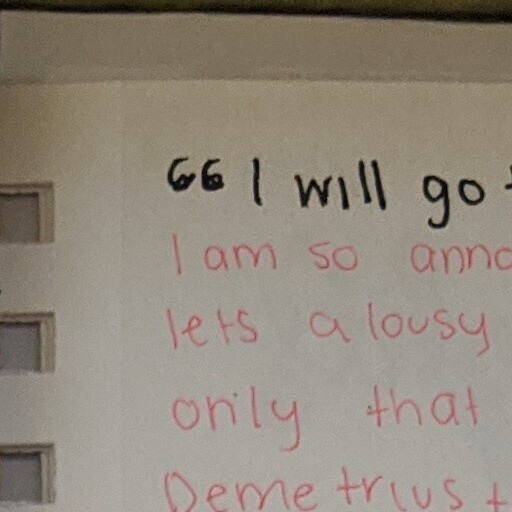 “I will go
I am so anno
lets a lousy
only that
Demetrius t